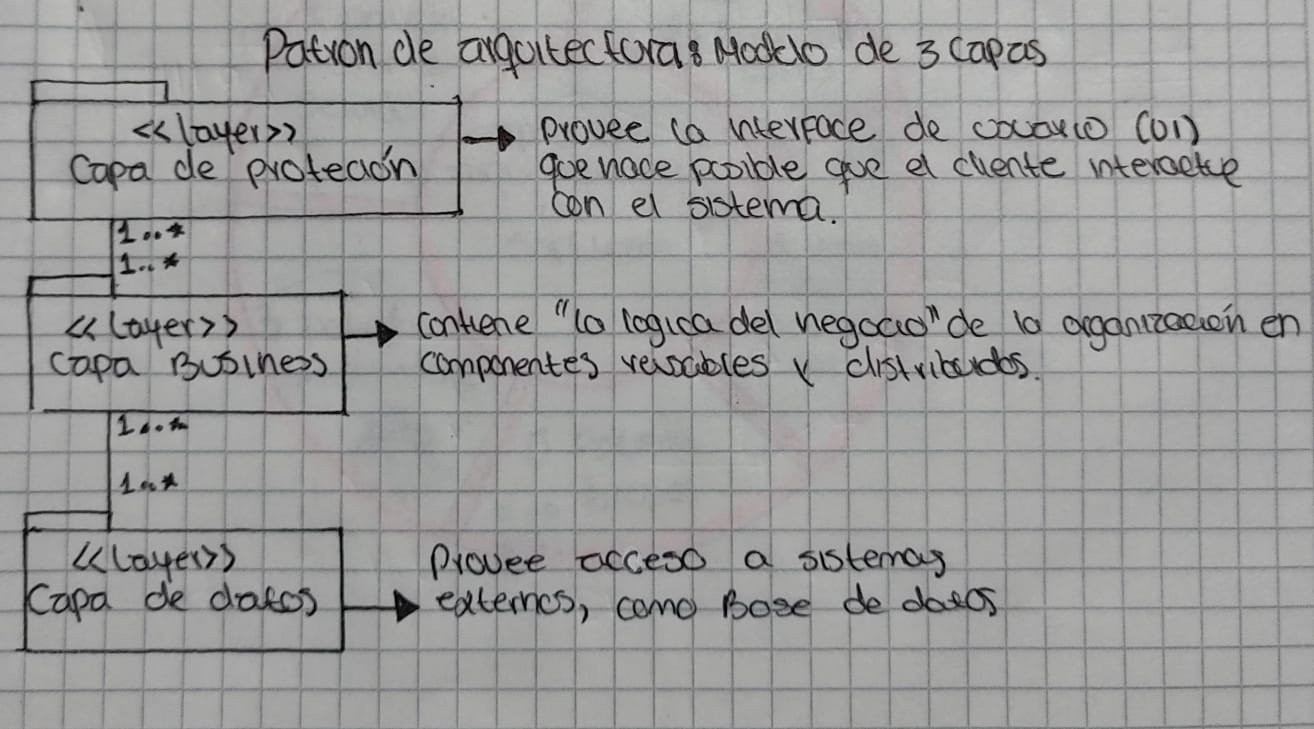 Patron de arquitectura: Modelo de 3 capas
<<layer>>
Capa de protección
provee la interface de usuario (UI)
que hace posible que el cliente interactue
con el sistema.
1..*
1..*
<<layer>>
Capa Business
contiene "la logica del negocio" de la organización en
componentes reusables y distribuidos.
1..*
1..*
<<Layer>>
Capa de datos
Provee acceso a sistemas
externos, como Base de datos